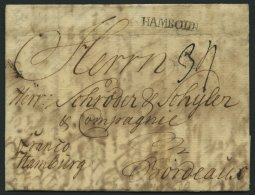 HAMBOUR
Herrn
Herr: Schröder & Schÿler
& Compagnie
Franco
Hamburg
Bordeaux